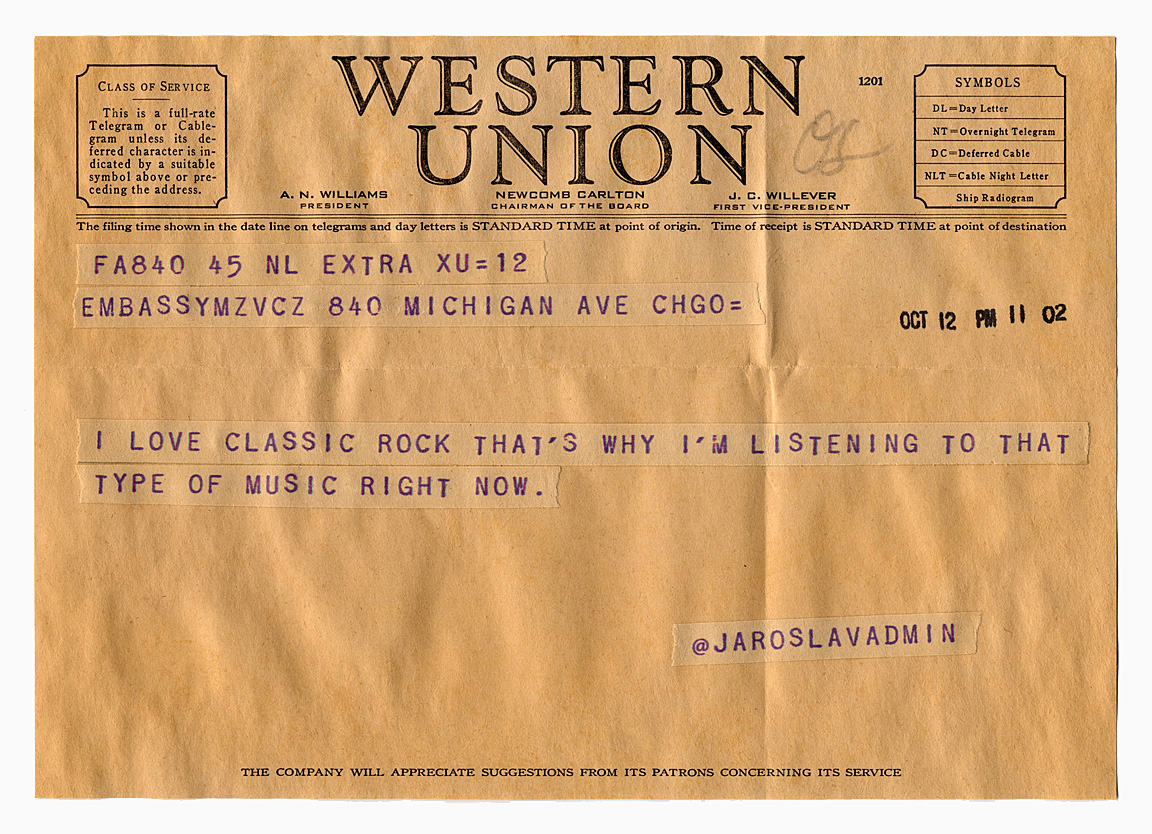 WESTERN
UNION
1201
CLASS OF SERVICE
This is a full-rate
Telegram or Cable-
gram unless its de-
ferred character is in-
dicated by a suitable
symbol above or pre-
ceding the address.
SYMBOLS
DL=Day Letter
NT=Overnight Telegram
DC=Deferred Cable
NLT=Cable Night Letter
Ship Radiogram
A. N. WILLIAMS
PRESIDENT
NEWCOMB CARLTON
CHAIRMAN OF THE BOARD
J. C. WILLEVER
FIRST VICE-PRESIDENT
The filing time shown in the date line on telegrams and day letters is STANDARD TIME at point of origin. Time of receipt is STANDARD TIME at point of destination
FA840 45 NL EXTRA XU=12
EMBASSYMZVCZ 840 MICHIGAN AVE CHGO=
OCT 12 PM 11 02
I LOVE CLASSIC ROCK THAT'S WHY I'M LISTENING TO THAT
TYPE OF MUSIC RIGHT NOW.
@JAROSLAVADMIN
THE COMPANY WILL APPRECIATE SUGGESTIONS FROM ITS PATRONS CONCERNING ITS SERVICE